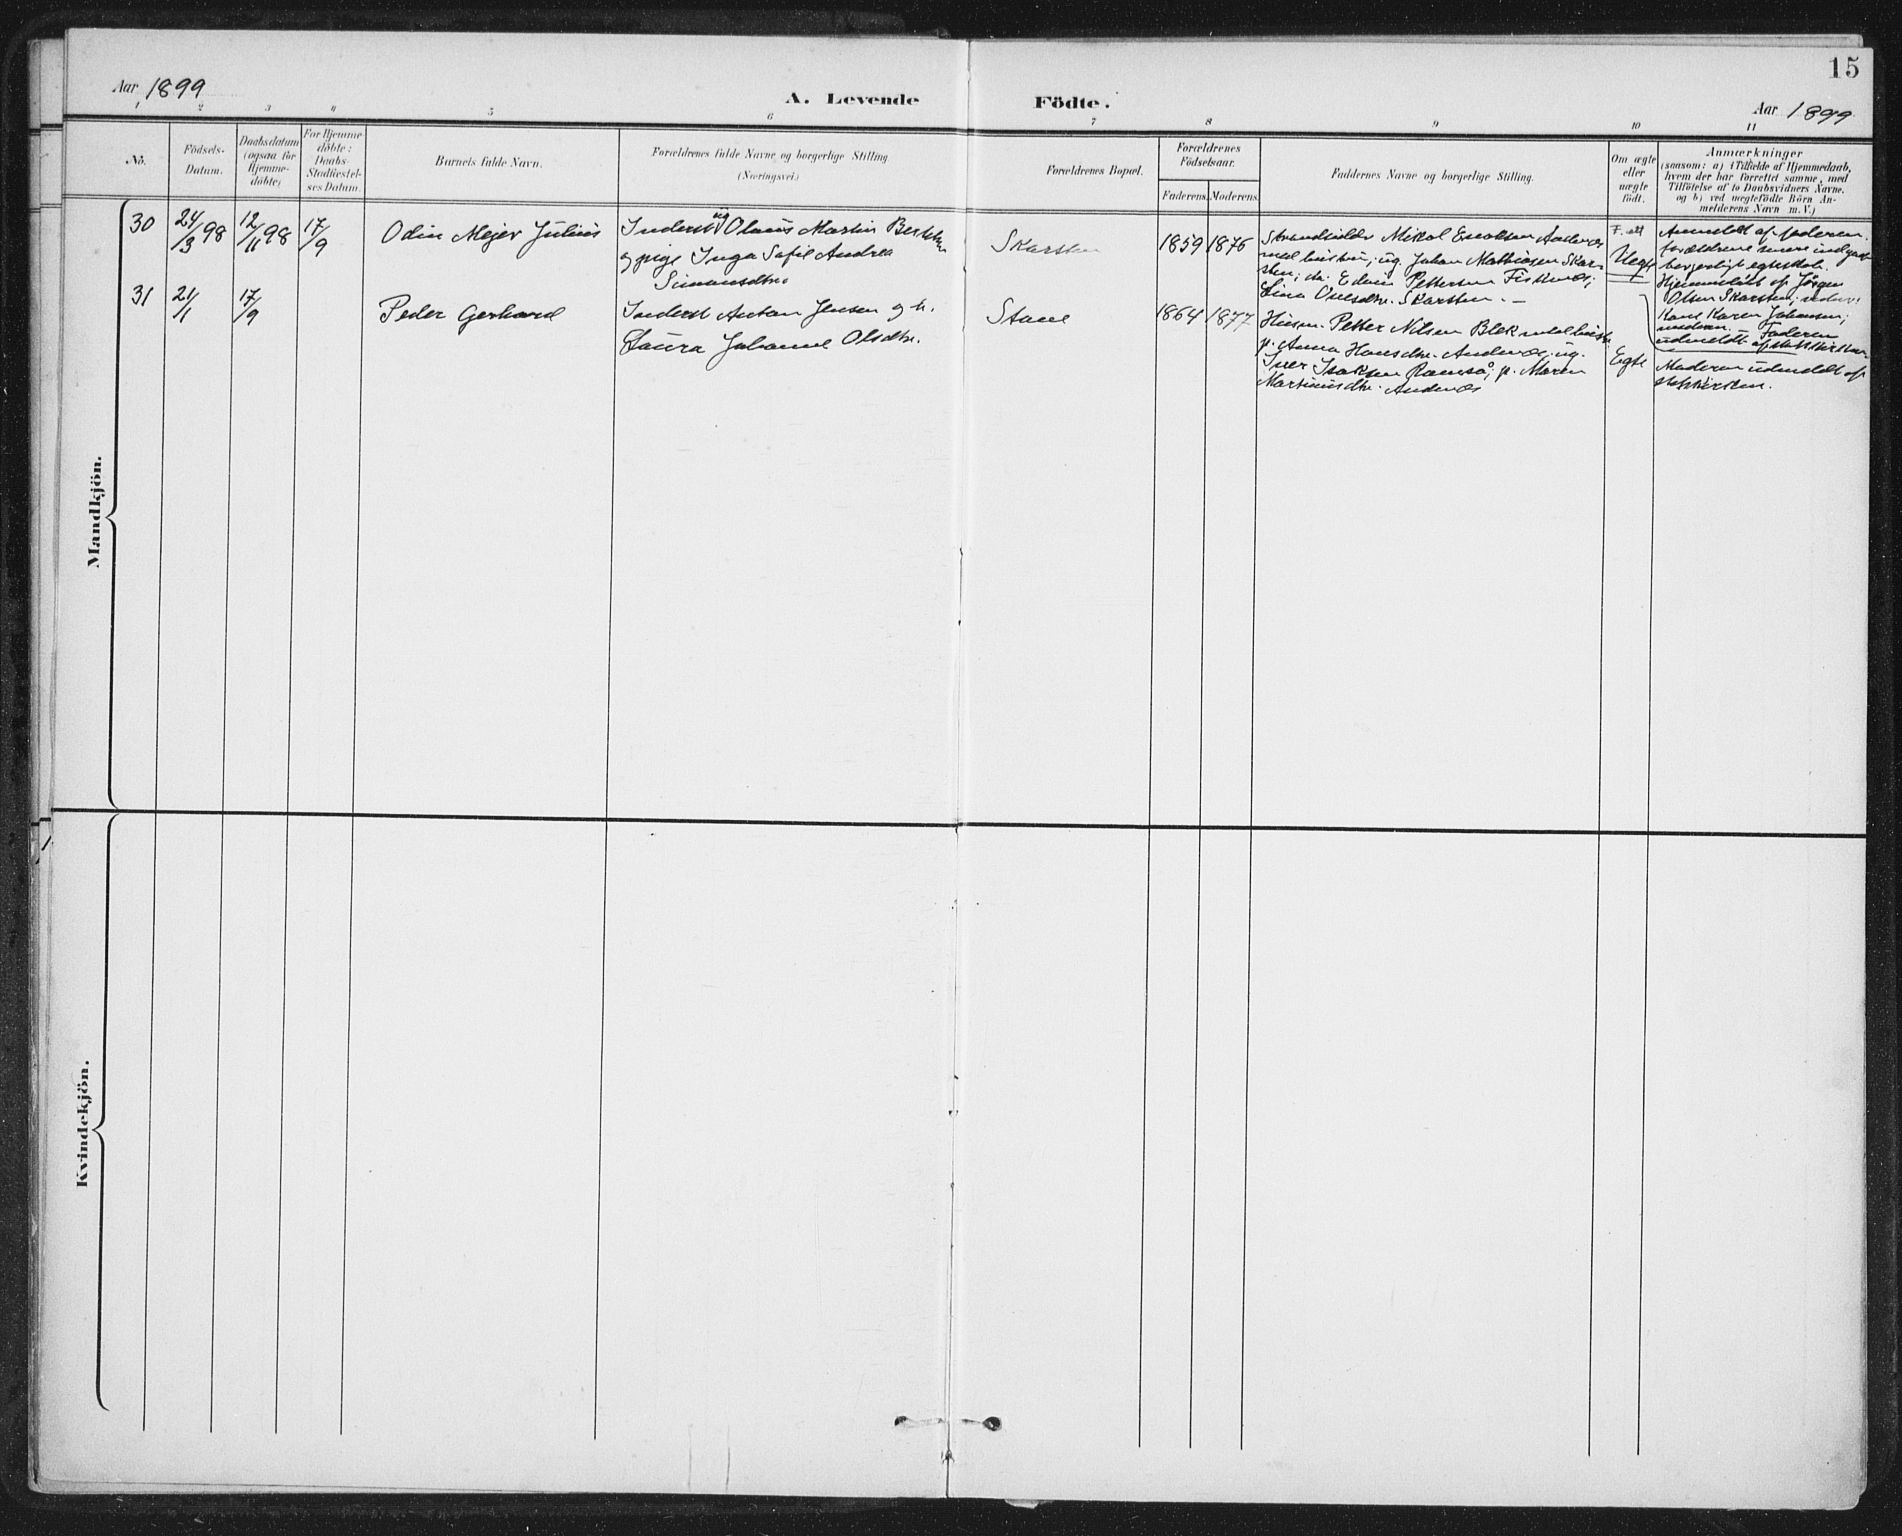 15
Aar 1899
A. Levende Födte.
Aar 1899
1 2 3 4 5 6 7 8 9 10 11
No.
Födsels-
Datum.
Daabsdatum
(ogsaa for
Hjemme-
döbte)
For Hjemme
döbte:
Daabs-
Stadfæstel-
ses Datum.
Barnets fulde Navn.
Forældrenes fulde Navne og borgerlige Stilling
(Næringsvei)
Forældrenes Bopæl.
Forældrenes
Födselsaar.
Faderens.
Moderens.
Faddernes Navne og borgerlige Stilling.
Om ægte
eller
uægte
født.
Anmærkninger
(saasom: a) i Tilfælde af Hjemmedaab,
hvem der har forrettet samme, med
Tilföielse af to Daabsvidners Navne.
og b) ved uægtefödte Börn An-
melderens Navn m. V.)
Mandkjön.
30
24/3 98
12/11 98
17/9
Odin Mejer Julius
Inderst ug Olaus Martin
og pige Inga Sofie Andrea
Simonsdtr.
Skarsten
1859
1876
Strandsidder Mikal Enoksen Andenæs
med hustru; ug. Johan Mathiasen Skar-
sten; do. Edvin Pettersen Fiskenæs;
Lina Olesdtr. Skarsten. —
F. alt
Uegte
Anmeldt af faderen.
forældrene senere indgaaet
borgerligt egteskab.
Hjemmedøbt af Jörgen
Olsen Skarsten;
Kone Karen Johansen;
moderen. — Faderen
udmeldt af statskirken.
31
21/1
17/9
Peder Gerhard
Inderst Anton Jensen og h.
Laura Johanne Olsdtr.
Stave
1864
1877
Husm. Petter Nilsen Blek med hustr.
p. Anna Hansdtr. Andenæs; ug.
Iver Isaksen Ramså; p. Maren
Martinusdtr. Andenæs
Egte
Moderen udmeldt af
statskirken.
Kvindekjön.